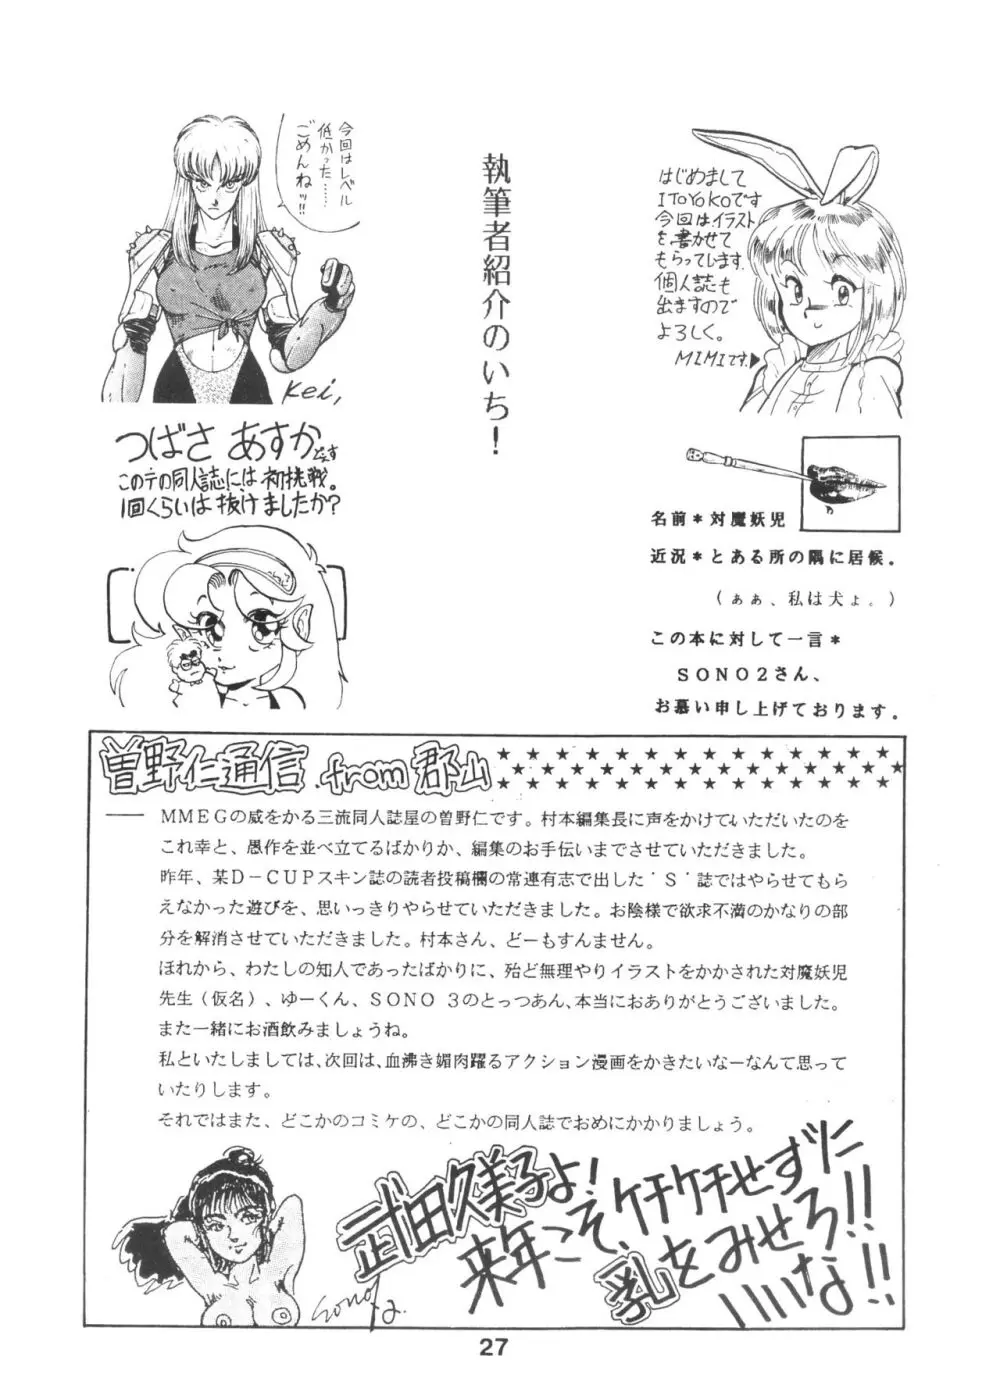 執筆者紹介のいち！
はじめまして
ITOYOKOです
今回はイラスト
を書かせて
もらってします.
個人誌も
出ますので
よろしく。
MIMIです.▶
今回はレベル
低かった……
ごめんねッ!!
Kei,
つばさ あすかどえす
このテの同人誌には初挑戦。
1回くらいは抜けましたか?
名前＊対魔妖児
近況＊とある所の隅に居候。
（ぁぁ、私は犬ょ。）
この本に対して一言＊
ＳＯＮＯ２さん、
お慕い申し上げております。
曽野仁通信 .from 郡山
ＭＭＥＧの威をかる三流同人誌屋の曽野仁です。村本編集長に声をかけていただいたのを
これ幸と、愚作を並べ立てるばかりか、編集のお手伝いまでさせていただきました。
昨年、某Ｄ－ＣＵＰスキン誌の読者投稿欄の常連有志で出した‘Ｓ’誌ではやらせてもら
えなかった遊びを、思いっきりやらせていただきました。お陰様で欲求不満のかなりの部
分を解消させていただきました。村本さん、どーもすんません。
ほれから、わたしの知人であったばかりに、殆ど無理やりイラストをかかされた対魔妖児
先生（仮名）、ゆーくん、ＳＯＮＯ ３のとっつあん、本当におありがとうございました。
また一緒にお酒飲みましょうね。
私といたしましては、次回は、血沸き媚肉躍るアクション漫画をかきたいなーなんて思って
いたりします。
それではまた、どこかのコミケの、どこかの同人誌でおめにかかりましょう。
武田久美子よ!
来年こそ、ケチケチせずソニ
乳をみせろ!!
いいな!!
Sono
27